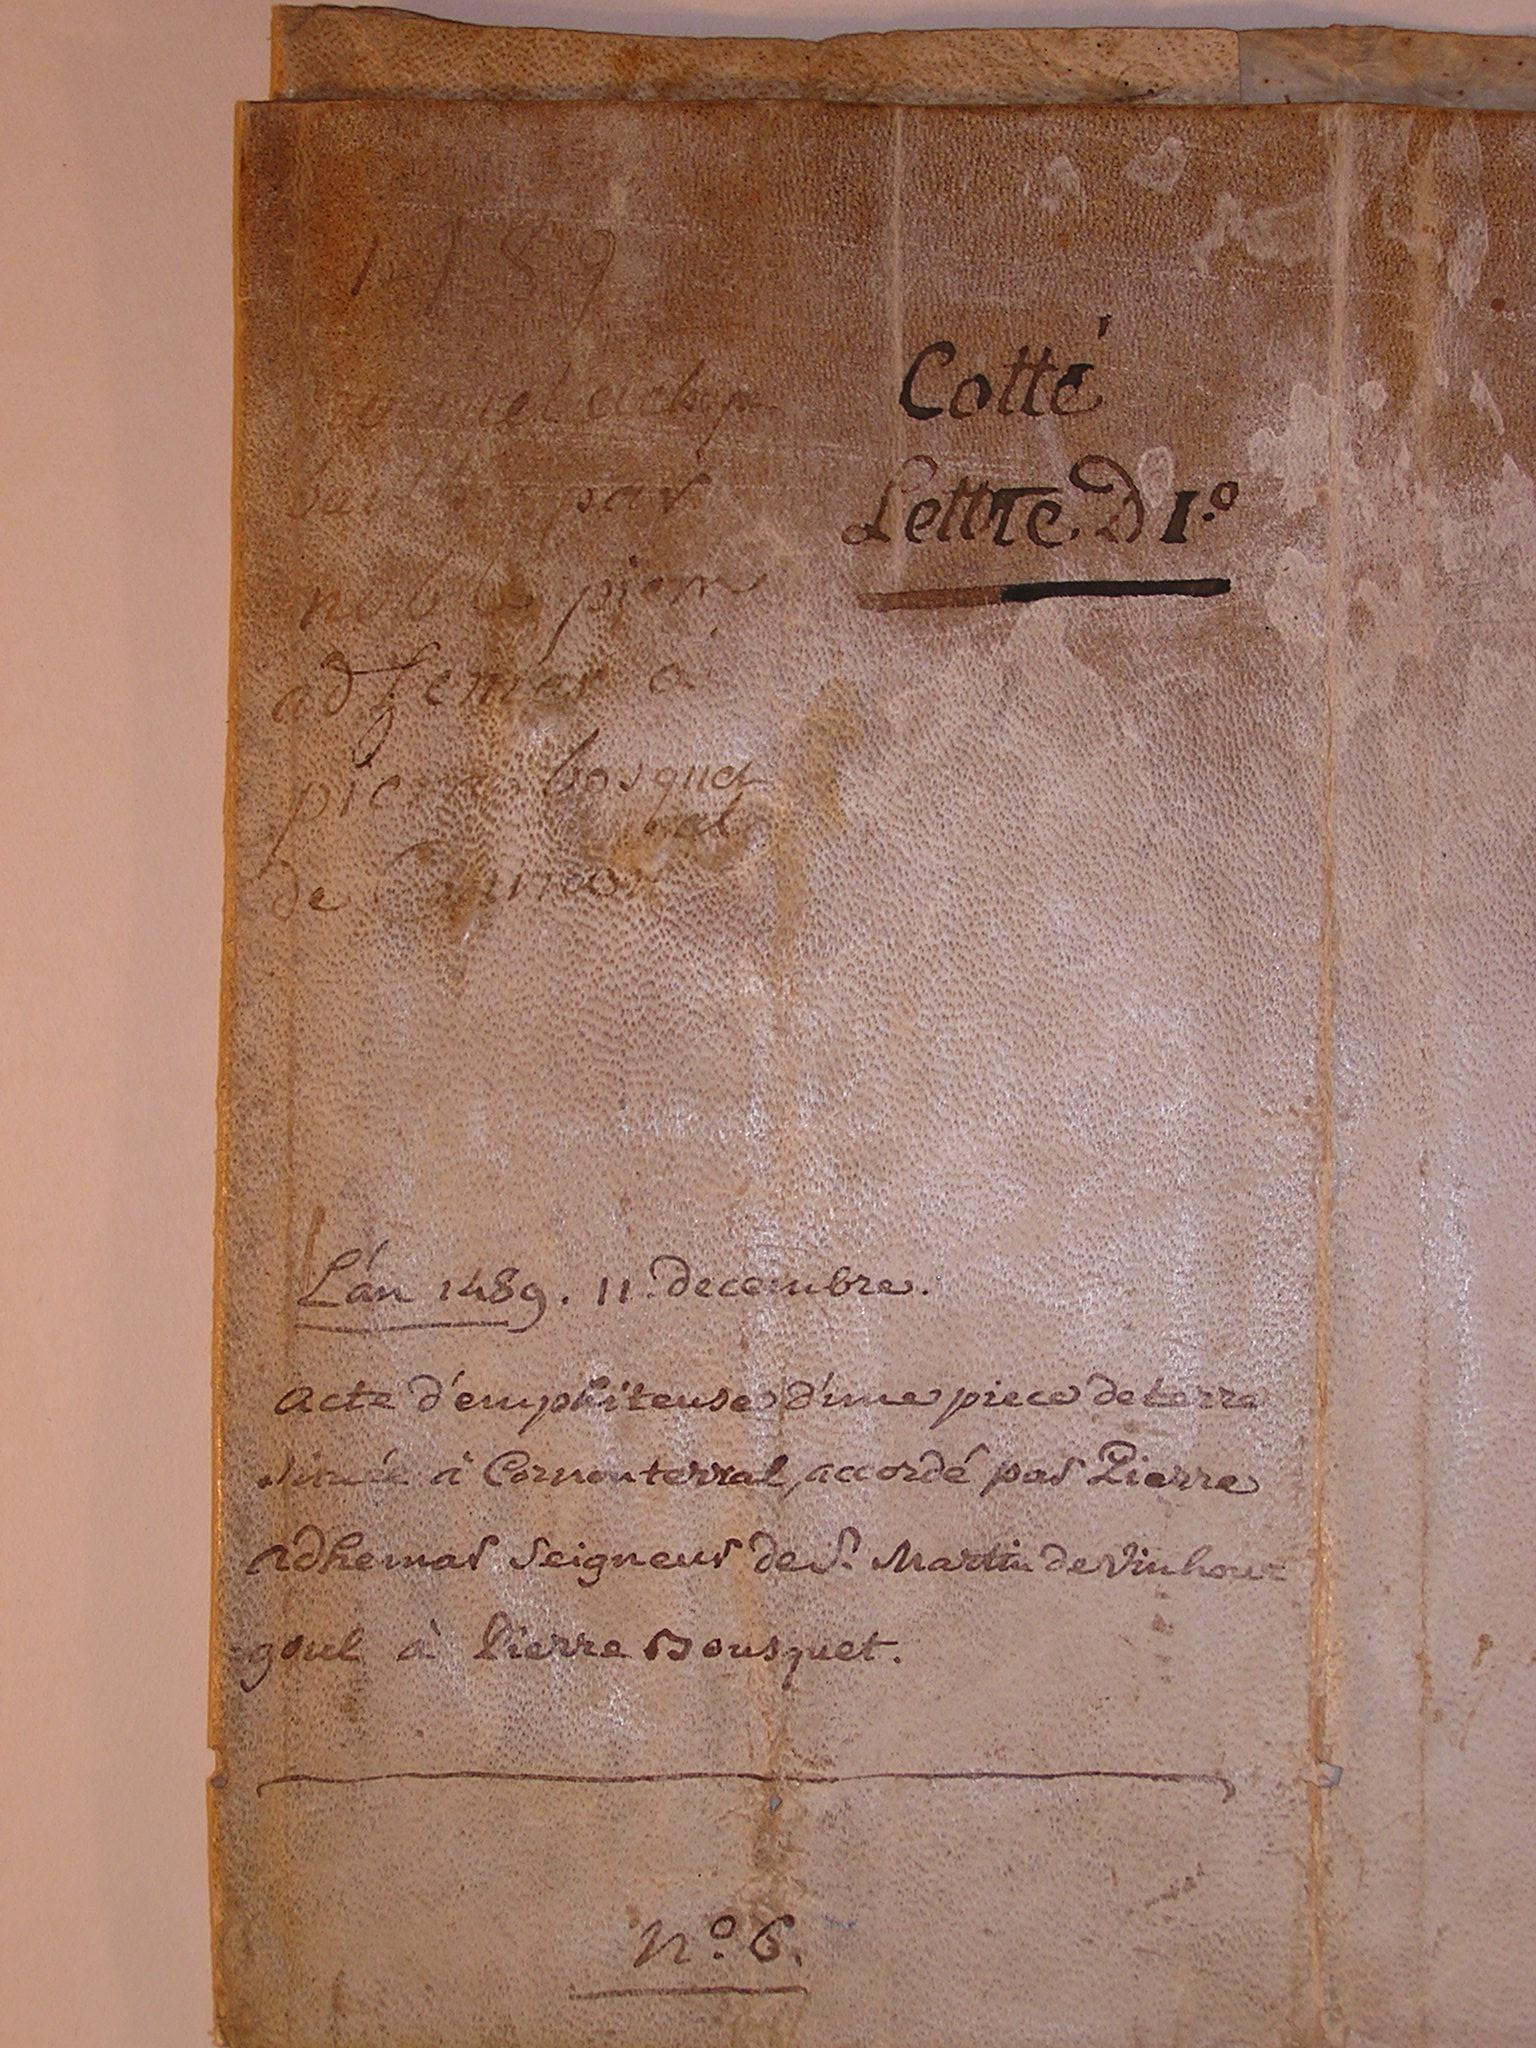 1489
Cotté
Lettre D 1.o
par
noble pierre
adzemar a
pierre bosquet
de
L'an 1489. 11 decembre.
acte d'emphiteuse d'une piece de terre
située à Cornonterral, accordé par Pierre
adhemar Seigneur de St. Martin de Vinhou=
=goul à Pierre Bousquet.
n.o 6.